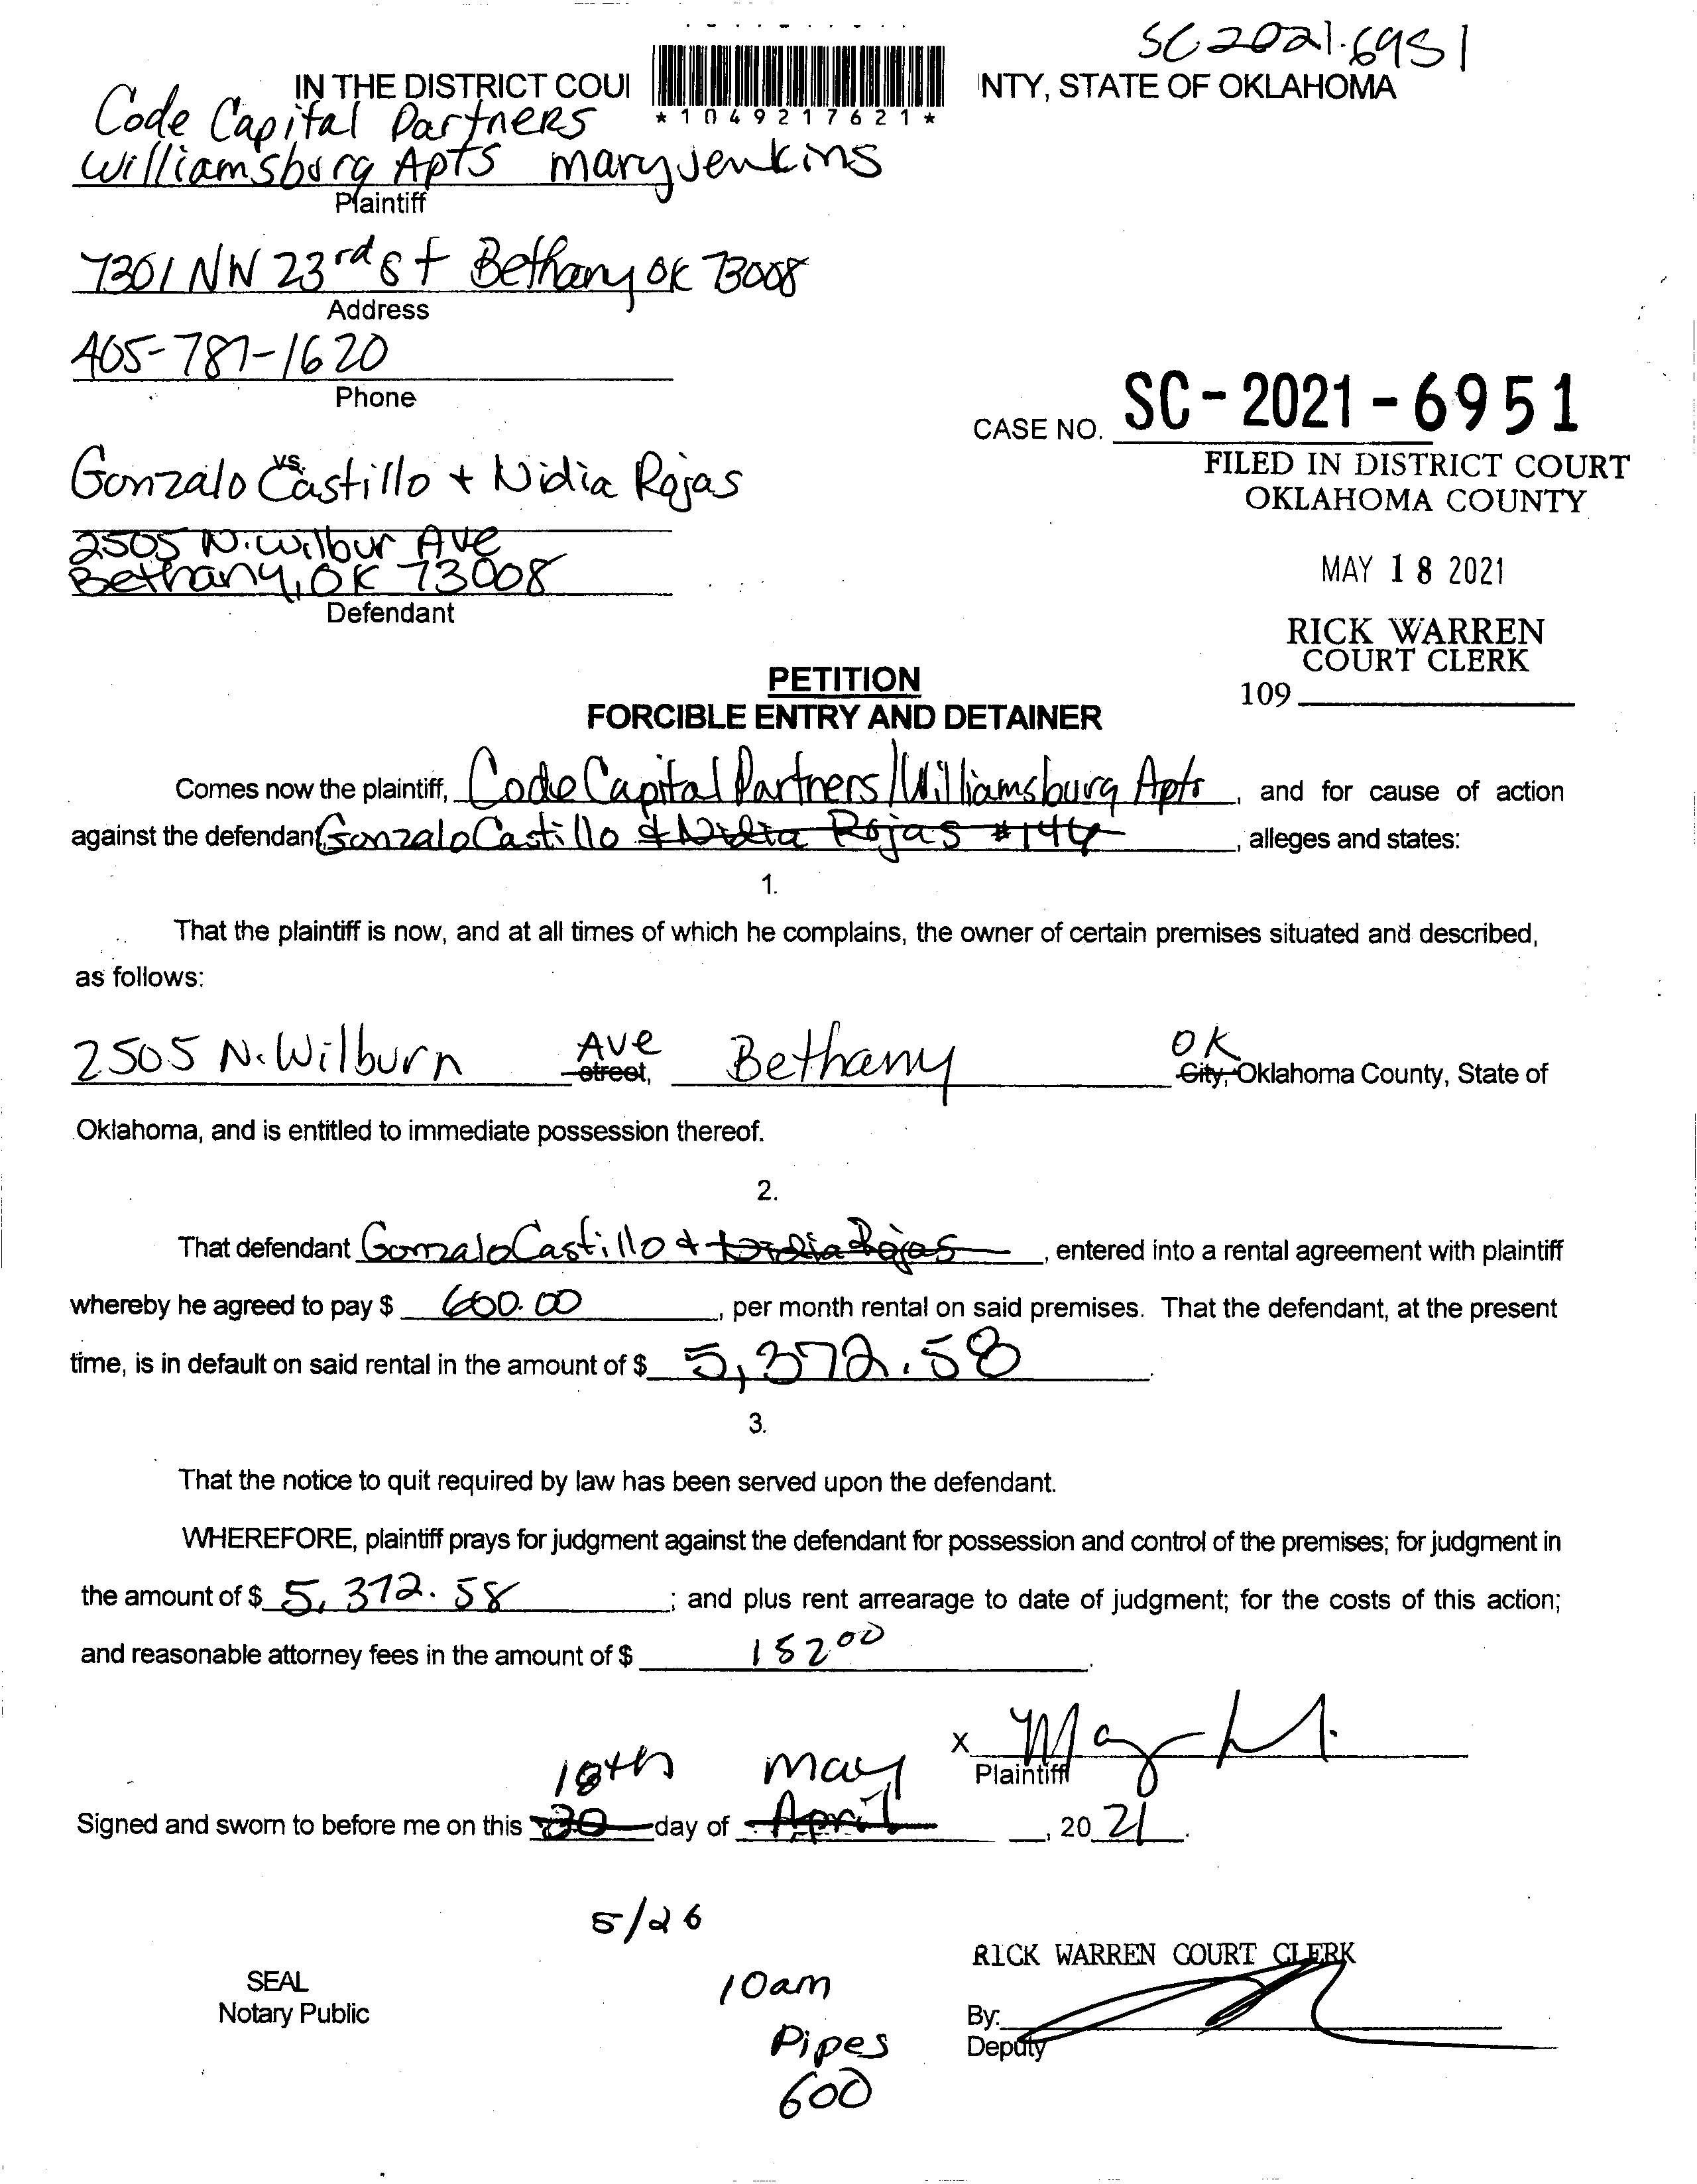 SC2021.6951
IN THE DISTRICT COU NTY, STATE OF OKLAHOMA
*1049217621*
Code Capital Partners
Williamsburg Apts mary Jenkins
Plaintiff
7301 NW 23rd St Bethany OK 73008
Address
405-787-1620
Phone
CASE NO. SC-2021-6951
FILED IN DISTRICT COURT
OKLAHOMA COUNTY
MAY 18 2021
RICK WARREN
COURT CLERK
109
vs.
Gonzalo Castillo + Nidia Rojas
2505 N. Wilbur Ave
Bethany, OK 73008
Defendant
PETITION
FORCIBLE ENTRY AND DETAINER
Comes now the plaintiff, Code Capital Partners/Williamsburg Apts, and for cause of action
against the defendant Gonzalo Castillo & Nidia Rojas #144, alleges and states:
1.
That the plaintiff is now, and at all times of which he complains, the owner of certain premises situated and described,
as follows:
2505 N. Wilburn Ave street, Bethany OK City, Oklahoma County, State of
Oklahoma, and is entitled to immediate possession thereof.
2.
That defendant Gonzalo Castillo & Nidia Rojas, entered into a rental agreement with plaintiff
whereby he agreed to pay $ 600.00, per month rental on said premises. That the defendant, at the present
time, is in default on said rental in the amount of $ 5,372.58.
3.
That the notice to quit required by law has been served upon the defendant.
WHEREFORE, plaintiff prays for judgment against the defendant for possession and control of the premises; for judgment in
the amount of $ 5,372.58; and plus rent arrearage to date of judgment; for the costs of this action;
and reasonable attorney fees in the amount of $ 15200.
X
Plaintiff
18th may
Signed and sworn to before me on this 20 day of April, 2021.
5/26
10am
Pipes
600
SEAL
Notary Public
RICK WARREN COURT CLERK
By:
Deputy